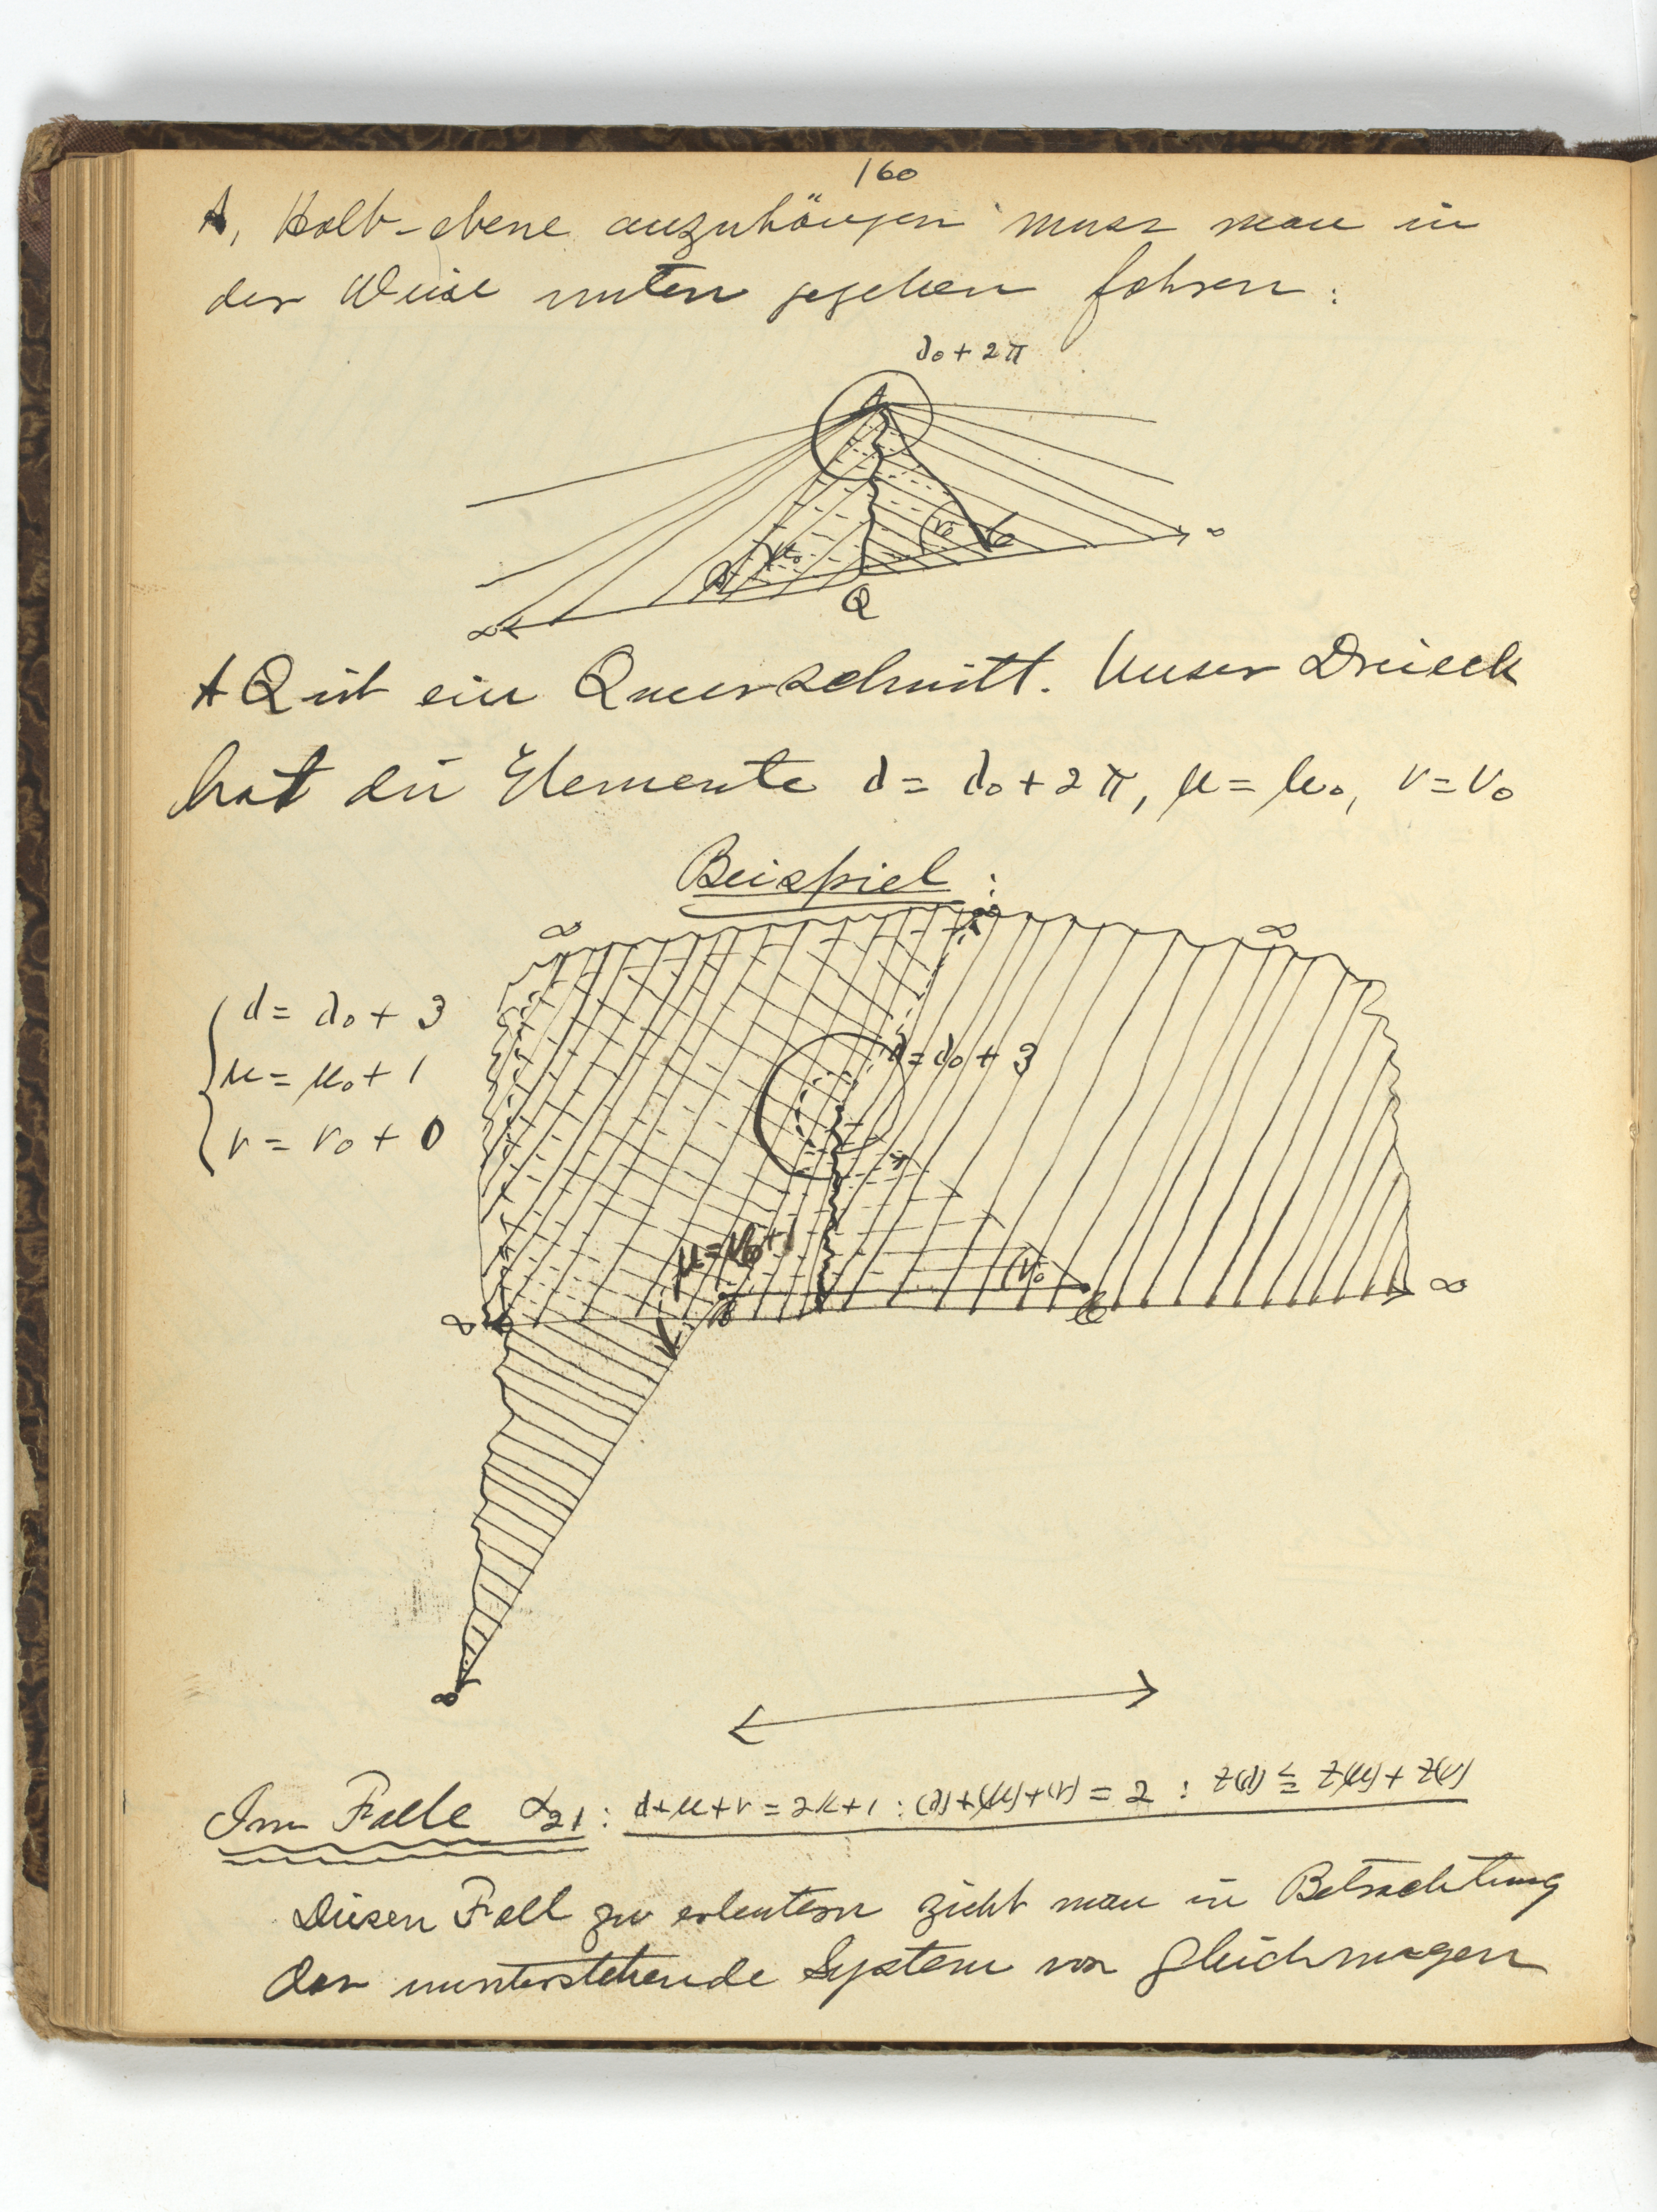 160
A, Halb-ebene anzuhängen muss man in
der Weise unten gegeben fahren:
λ₀ + 2π
A
ν₀
μ₀
B
C
Q
∞
∞
AQ ist ein Querschnitt. Unser Dreieck
hat die Elemente λ = λ₀ + 2π, μ = μ₀, ν = ν₀
Beispiel:
∞
∞
∞
λ = λ₀ + 3
μ = μ₀ + 1
ν = ν₀ + 0
λ = λ₀ + 3
μ = μ₀ + 1
ν₀
B
C
∞
∞
∞
Im Falle α₂₁: λ+μ+ν = 2k+1 : (λ)+(μ)+(ν) = 2 : Z(λ) ≦ Z(μ) + Z(ν)
Diesen Fall zu erleutern zieht man in Betrachtung
der unterstehende System von Gleichungen